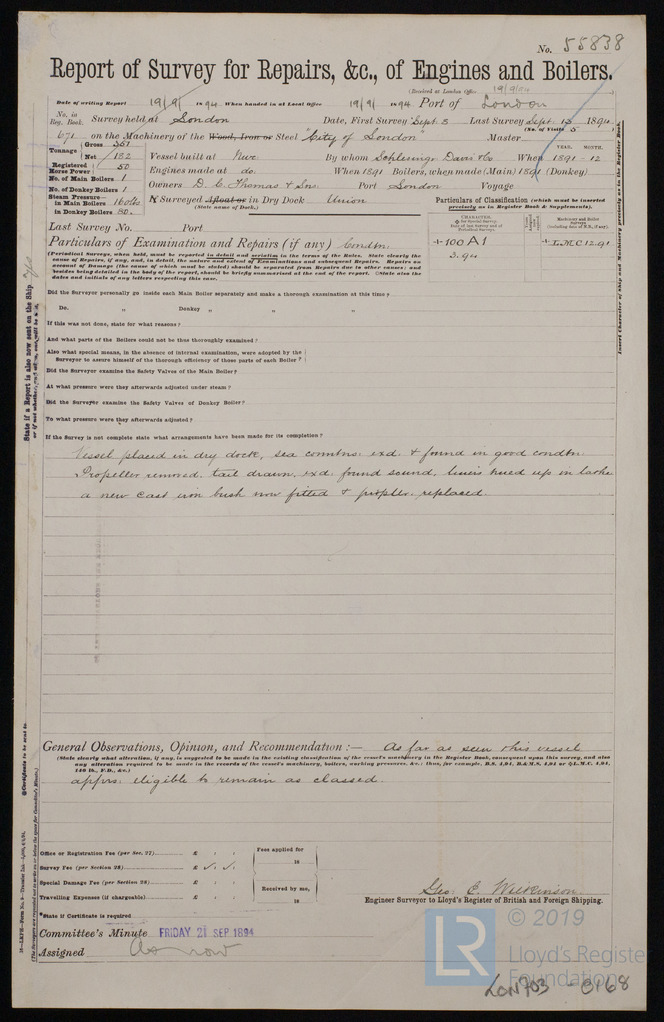 No. 55838
Report of Survey for Repairs, &c., of Engines and Boilers.
(Received at London Office 19/9/94)
Date of writing Report 19/9/ 1894. When handed in at Local Office 19/9/ 1894 Port of London
No. in Reg. Book. Survey held at London Date, First Survey Sept. 3 Last Survey Sept. 13 1894
(No. of Visits 5)
671 on the Machinery of the Wood, Iron or Steel "City of London" Master
Tonnage Gross 367
Net 182
Vessel built at Nwc. By whom Schlesing. Davis & Co When 1891 - 12
YEAR. MONTH.
Registered Horse Power 50
Engines made at do. When 1891 Boilers, when made (Main) 1891 (Donkey)
No. of Main Boilers 1
No. of Donkey Boilers 1
Owners D. C. Thomas & Sns. Port London Voyage
Steam Pressure in Main Boilers 160 lbs
in Donkey Boilers 80.
If Surveyed Afloat or in Dry Dock Union
(State name of Dock.)
Particulars of Classification (which must be inserted precisely as in Register Book & Supplements).
Last Survey No. Port
Particulars of Examination and Repairs (if any) Condtn.
+100 A1
3.94
+LMC 12.91
(Periodical Surveys, when held, must be reported in detail and seriatim in the terms of the Rules. State clearly the
cause of Repairs, if any, and, in detail, the nature and extent of Examinations and subsequent Repairs. Repairs on
account of Damage (the cause of which must be stated) should be separated from Repairs due to other causes; and
besides being detailed in the body of the report, should be briefly summarised at the end of the report. State also the
dates and initials of any letters respecting this case.
Did the Surveyor personally go inside each Main Boiler separately and make a thorough examination at this time?
Do. " Donkey " " "
If this was not done, state for what reasons?
And what parts of the Boilers could not be thus thoroughly examined?
Also what special means, in the absence of internal examination, were adopted by the
Surveyor to assure himself of the thorough efficiency of those parts of each Boiler?
Did the Surveyor examine the Safety Valves of the Main Boiler?
At what pressure were they afterwards adjusted under steam?
Did the Surveyor examine the Safety Valves of Donkey Boiler?
To what pressure were they afterwards adjusted?
If the Survey is not complete state what arrangements have been made for its completion?
Vessel placed in dry dock, sea conntns. exd. & found in good condtn.
Propeller removed, tail drawn, exd. found sound, liners trued up in lathe
a new cast iron bush now fitted & propller. replaced.
General Observations, Opinion, and Recommendation:— As far as seen this vessel
(State clearly what alteration, if any, is suggested to be made in the existing classification of the vessel's machinery in the Register Book, consequent upon this survey, and also
any alteration required to be made in the records of the vessel's machinery, boilers, working pressures, &c.; thus, for example, B.S. 4,94, B.&M.S. 4,94 or L.M.C. 4,94,
140 lb., F.D., &c.)
apprs. eligible to remain as classed.
Office or Registration Fee (per Sec. 27) £ : :
Fees applied for
18
Survey Fee (per Section 28) £
Special Damage Fee (per Section 28) £ : :
Received by me,
18
Travelling Expenses (if chargeable) £ : :
Geo. E. Wilkinson
Engineer Surveyor to Lloyd's Register of British and Foreign Shipping.
*State if Certificate is required
Committee's Minute FRIDAY 21 SEP 1894
Assigned As now
© 2019
LR
Lloyd's Register
Foundation
LON703 - 0168
State if a Report is also now sent on the Ship
Insert Character of Ship and Machinery precisely as in the Register Book.